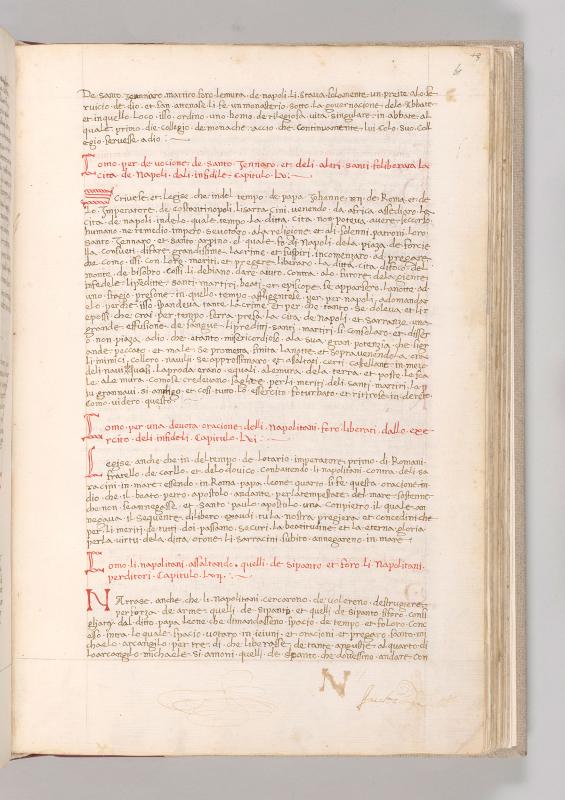 De santo Jennaro martiro foro lemura de napoli li stava solamente un preite alo se
ruicio de dio et san attenase li fe un monasterio sotto la governacione delo Abbate
et inquello Loco isso ordino uno homo de religiosa vita singulare in abbate al
quale primo die collegio de monache accio che continuamente lui colo suo coll
egio servesse adio
Como per devocione de santo Jennaro et deli altri santi fo liberata la
cita de Napoli dali infidile Capitulo Lv
Scrivese et Legise che indel tempo de papa Johanne de Roma et de
Lo Imperatore de costantinopoli li sarracini venendo da africa assediaro La
cita de napoli indelo quale tempo La ditta cita non poteva avere soccorso
humano ne remedio impero sevotaro ala religione et ali solenni patroni loro
santo Jennaro et santo arpino el quale fo di Napoli dela piaza de forcie
lla consueti difare grandissime Lacrime et suspiri incomensaro ad pregare
che como issi con Loro meriti et pregere liberaro La ditta cita difoco del
monte de bisobio cossi li debiano dare aiuto contra alo furore dela giente
infedele Lipreditti santi martiri beati et episcope se apparsero lanotte ad
uno fragio presone in quello tempo affligentese per napoli adomandar
elo perche isso spandeva tante lacrime et per che tanto se doleva et li r
epossi che crai per tempo serra presa la cita de Napoli et sarranze una
grande effusione de sangue Lipreditti santi martiri li consolaro et disser
o non piaza adio che etanto misericordioso ala sua gran potenzia che
ande peccate et male se promecta finita lanotte et sopravenendo a crai
li inimici collero navilij se approssimaro et asaltasi certi castellane in meze
deli navi quali Laproda erano equali alemura dela terra et poste Le sca
le ale mura como se credevano saglire per li meriti deli santi martiri
tutto lo esercito fo turbato et ritrose in derete
como videro questo
Como per una devota oracione delli Napolitani foro liberati dallo exe
rcito deli infideli Capitulo Lvi
Legise anche che in del tempo de Lotario imperatore primo di Romani
fratello de carllo et delo dovico combattendo li napolitani contra deli sa
racini in mare essendo in Roma papa Leone quarto si fe questa oracione in
dio che il beato petro apostolo andante per la tempestate del mare sostenne
che non se annegasse et santo paulo apostolo una con pietro il quale an
negava il sequente dilibero exaudi tu la nostra pregiera et concedini che
per li meriti de tutti doi possano securi la beatitudine et la eterna gloria
per la virtu dela ditta orone li sarracini subito annegareno in mare
Como li napolitani assaltando quelli de sipanto et foro li Napolitani
perditori Capitulo Lvii
Narrase anche che li Napolitani cercarono de volereno destrugiere
per forza de arme quelli de sipanto et quelli de sipanto si foro consi
gliary dal ditto papa Leone che dimandasseno spacio de tempo et foloro conc
esso infra lo quale spacio votaro in ieiuni et oracioni et pregaro santo mi
chaelo arcangilo per tre di che liberasse de tante angustie al quarto di
lo arcangelo michaele si amoni quelli de sipanto che dovessino andare con
N